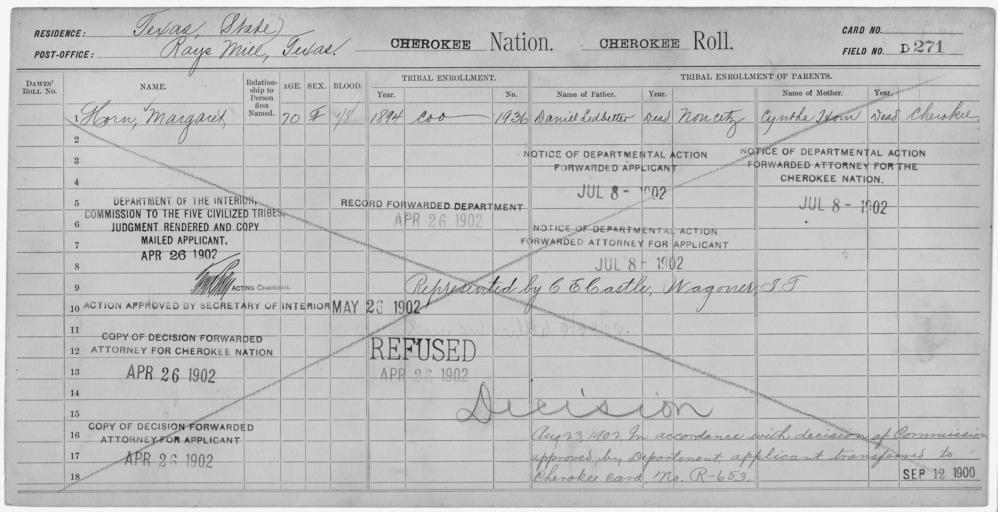 RESIDENCE: Texas, (State)
POST-OFFICE: Rays Mill, Texas.
CHEROKEE Nation. CHEROKEE Roll.
CARD NO.
FIELD NO. D 271
DAWES' ROLL NO.
NAME.
Relationship to Person first Named.
AGE.
SEX.
BLOOD.
TRIBAL ENROLLMENT.
Year.
No.
TRIBAL ENROLLMENT OF PARENTS.
Name of Father.
Year.
Name of Mother.
Year.
1 Horn, Margaret 70 F 1/8 1894 Coo 1936 Daniel Ledbetter Dead Non citz Cyntha Horn Dead Cherokee
2
3
4
5
6
7
8
9
10
11
12
13
14
15
16
17
18
NOTICE OF DEPARTMENTAL ACTION
FORWARDED APPLICANT
JUL 8 - 1902
NOTICE OF DEPARTMENTAL ACTION
FORWARDED ATTORNEY FOR THE
CHEROKEE NATION.
JUL 8 - 1902
DEPARTMENT OF THE INTERIOR,
COMMISSION TO THE FIVE CIVILIZED TRIBES.
JUDGMENT RENDERED AND COPY
MAILED APPLICANT.
APR 26 1902
ACTING CHAIRMAN.
RECORD FORWARDED DEPARTMENT
APR 26 1902
NOTICE OF DEPARTMENTAL ACTION
FORWARDED ATTORNEY FOR APPLICANT
JUL 8 - 1902
Represented by C E Castle, Wagoner, I T
ACTION APPROVED BY SECRETARY OF INTERIOR MAY 26 1902
COPY OF DECISION FORWARDED
ATTORNEY FOR CHEROKEE NATION
APR 26 1902
REFUSED
APR 26 1902
Decision
COPY OF DECISION FORWARDED
ATTORNEY FOR APPLICANT
APR 26 1902
Aug 23, 1902 In accordance with decision of Commission
approved by Department applicant transferred to
Cherokee card, No. R-653.
SEP 12 1900